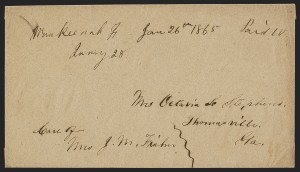 Jan 26th 1865 Paid 10
Jany 28
Mrs Octavia Stephens
Thomasville
Ga.
Care of
Mrs J. M. Fisher